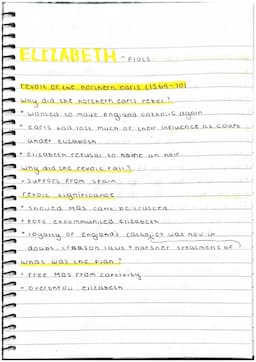 ELIZABETH - PLOTS
revolt of the northern earls (1569-70)
why did the northern earls rebel?
• wanted to make England catholic again
• earls had lost much of their influence at court
under Elizabeth
• Elizabeth refusal to name an heir
why did the revolt fail?
• support from spain
revolt significance
• showed MQS cant be trusted
• pope excommunicated Elizabeth
• loyalty of England's catholics was now in
doubt, treason laws + harsher treatment of
what was the plan?
• free MQS from captivity
• overthrow elizabeth